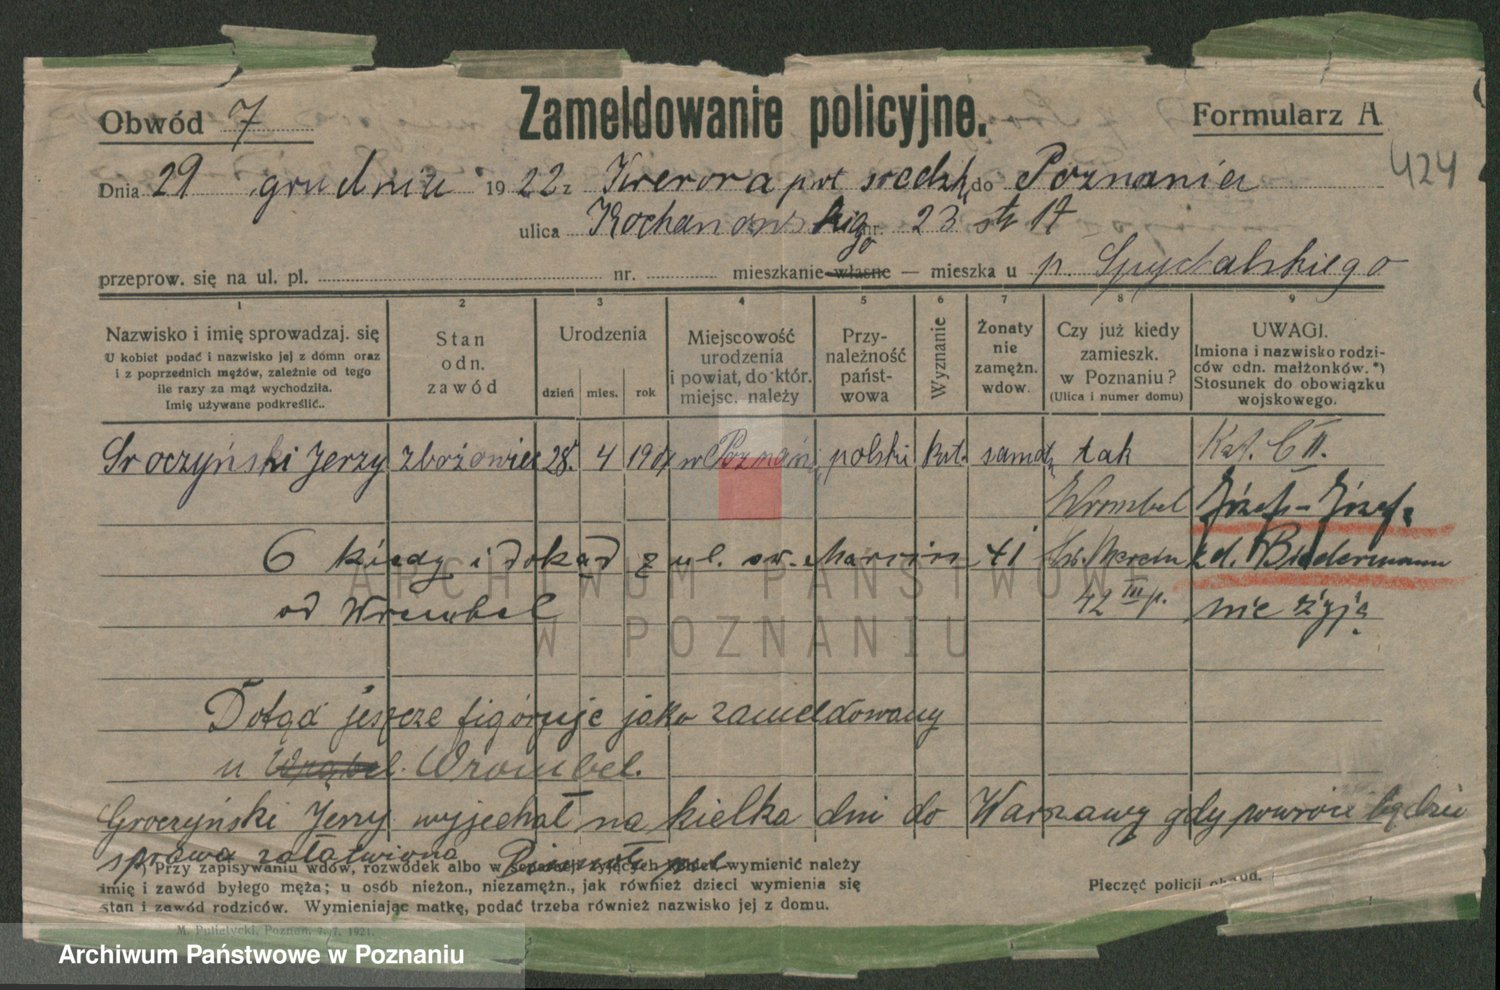 Obwód 7 Zameldowanie policyjne. Formularz A
424
Dnia 29 grudnia 1922 z pow. średzk. do Poznania
ulica Kochanowskiego nr. 23
przeprow. się na ul. pl. nr. mieszkanie własne — mieszka u p. Spychalskiego
1 2 3 4 5 6 7 8 9
Nazwisko i imię sprowadzaj. się
U kobiet podać i nazwisko jej z domn oraz
i z poprzednich mężów, zależnie od tego
ile razy za mąż wychodziła.
Imię używane podkreślić..
Stan
odn.
zawód
Urodzenia
dzień mies. rok
Miejscowość
urodzenia
i powiat, do któr.
miejsc. należy
Przy-
należność
państ-
wowa
Wyznanie
Żonaty
nie
zamężn.
wdow.
Czy już kiedy
zamieszk.
w Poznaniu?
(Ulica i numer domu)
UWAGI.
Imiona i nazwisko rodzi-
ców odn. małżonków.*)
Stosunek do obowiązku
wojskowego.
Sroczyński Jerzy zbożowiec 28. 4 1901 w Poznań polski kat. samot. tak Kat. C II.
Wrombel Józef - Józefa
6 kiedy i dokąd z ul. św. Marcin 41 Św. Marcin z d. Biedermann
od Wrembel 42 III p. nie żyją
Dotąd jeszcze figuruje jako zameldowany
u Wrombel.
Sroczyński Jerzy wyjechał na kilka dni do Warszawy gdy powróci będzie
sprawa załatwiona
*) Przy zapisywaniu wdów, rozwódek albo w separacji żyjących kobiet, wymienić należy
imię i zawód byłego męża; u osób nieżon., niezamężn., jak również dzieci wymienia się
stan i zawód rodziców. Wymieniając matkę, podać trzeba również nazwisko jej z domu.
Pieczęć policji obwod.
M. Putiatycki, Poznań, 7. 1921.
ARCHIWUM PAŃSTWOWE
W POZNANIU
Archiwum Państwowe w Poznaniu